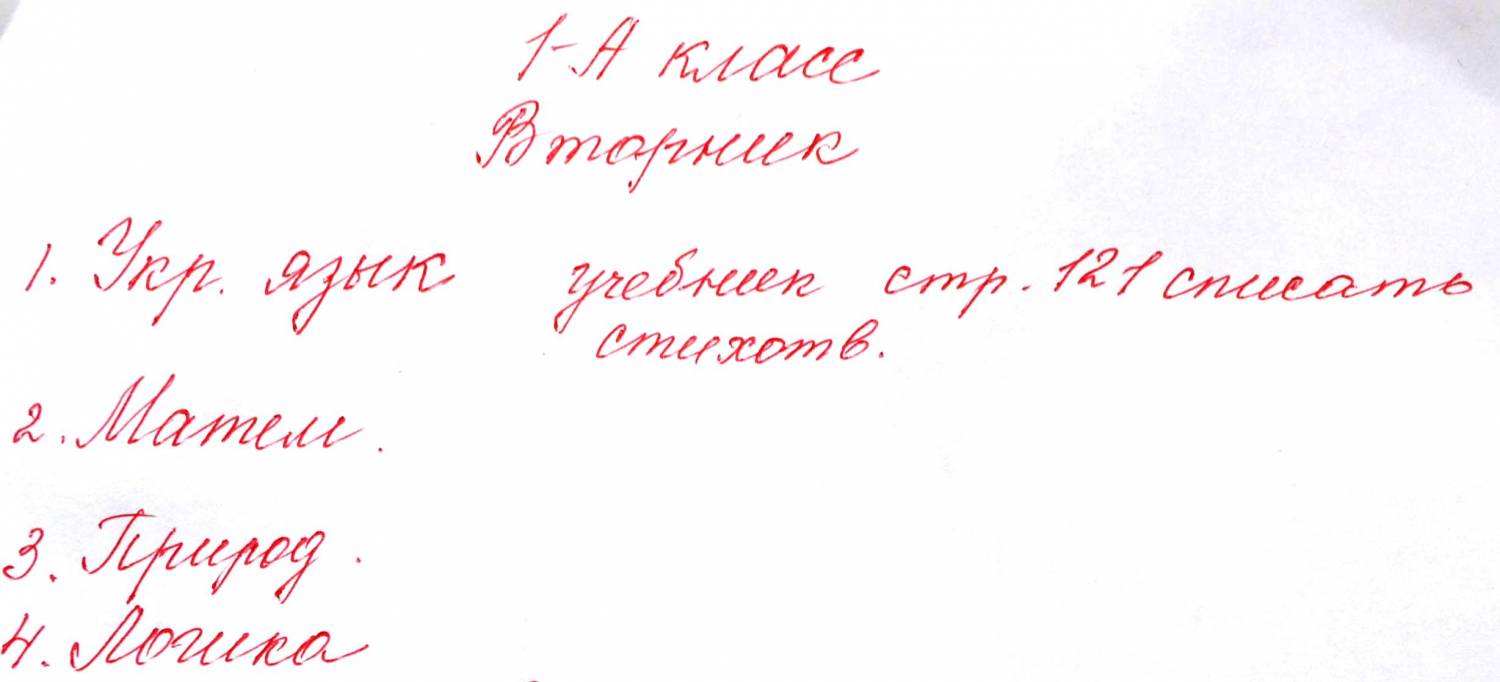 1-А класс
Вторник
1. Укр. язык учебник стр. 121 списать
стихотв.
2. Матем.
3. Природ.
4. Логика